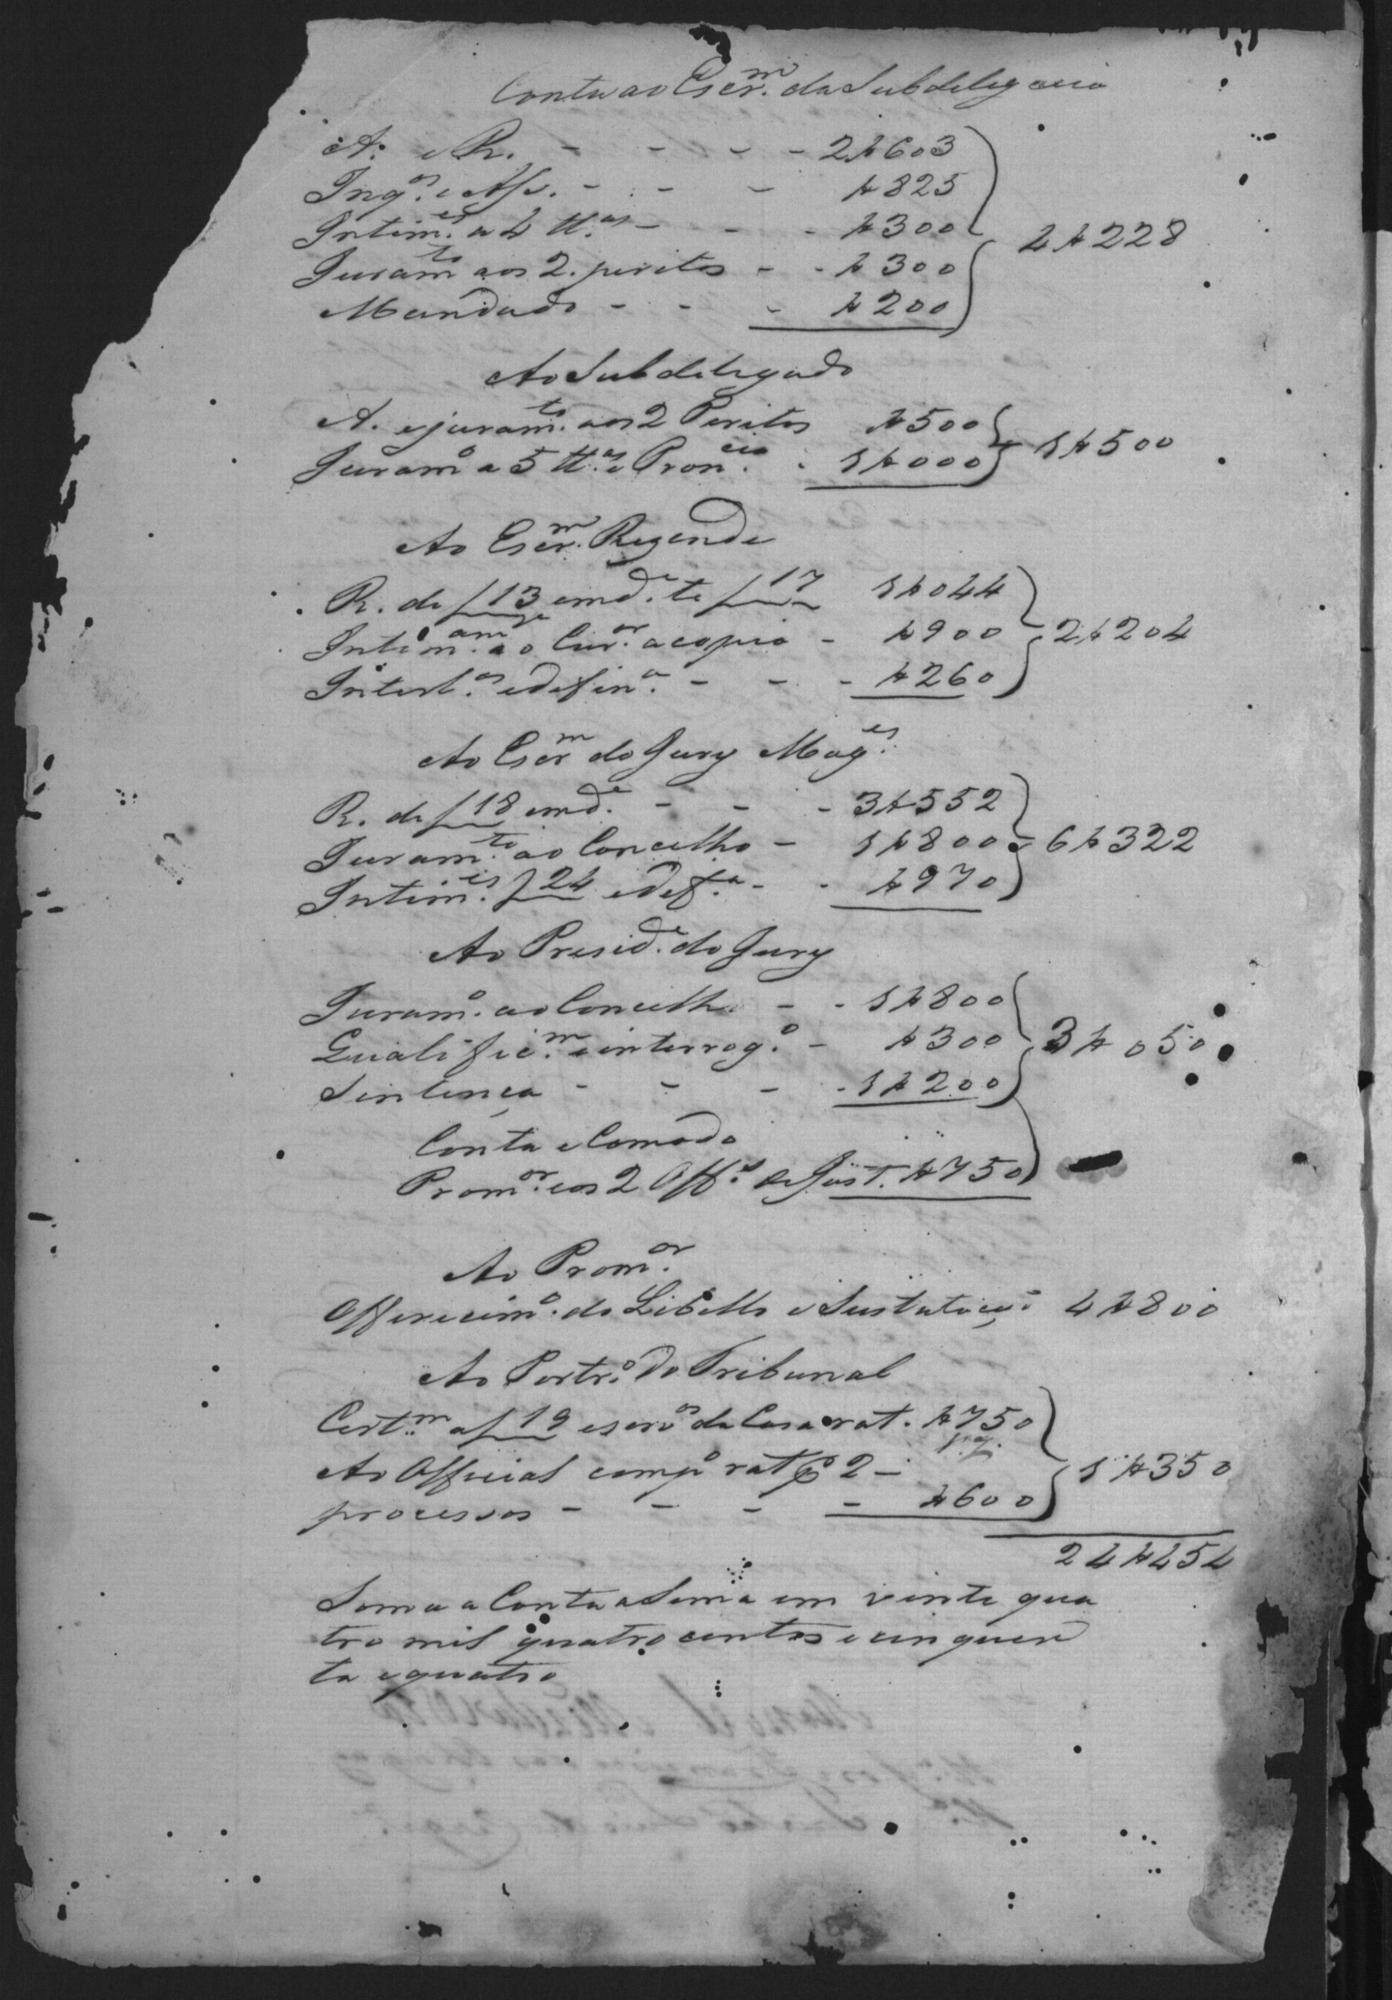 Conta ao Escr.m da Subdelegacia
A. e R. - - - - 2$603
Inq.os e Ass. - - - $825
Intim.es a 4 tt.as - - - $300
4$228
Juram.to aos 2 peritos - - $300
Mandado - - - $200
Ao Subdelegado
A. e juram.to aos 2 Peritos $500
1$500
Juram.o a 5 tt.as e Pron.cia . 1$000
Ao Escr.m Rezende
R. de f 13 em d.e te f 17 1$044
Intim.am ao Cur.or a copia - $900
2$204
Interl.as e defin.a - - - $260
Ao Escr.m do Jury Mag.es
R. de f 18 em d.e - - - 3$552
Juram.to ao Concelho - 1$800
6$322
Intim.es f 24 e def.a - - $970
Ao Presid.e do Jury
Juram.o ao Concelho - - 1$800
Qualific.m e interrog.o - $300
3$050
Sentença - - - - 1$200
Conta e Comodo
Prom.or aos 2 Off.s de Just. $750
Ao Prom.or
Offerecim.o do Libello e Sustentaçao 4$800
Ao Portr.o do Tribunal
Cert.m a f 19 e serv.os da Casa rat. $750
Ao Official comp.o rat p 2 -
1$350
processos - - - - $600
24$454
Somma a Conta a Soma em vinte qua
tro mil quatrocentos e cincoen
ta e quatro